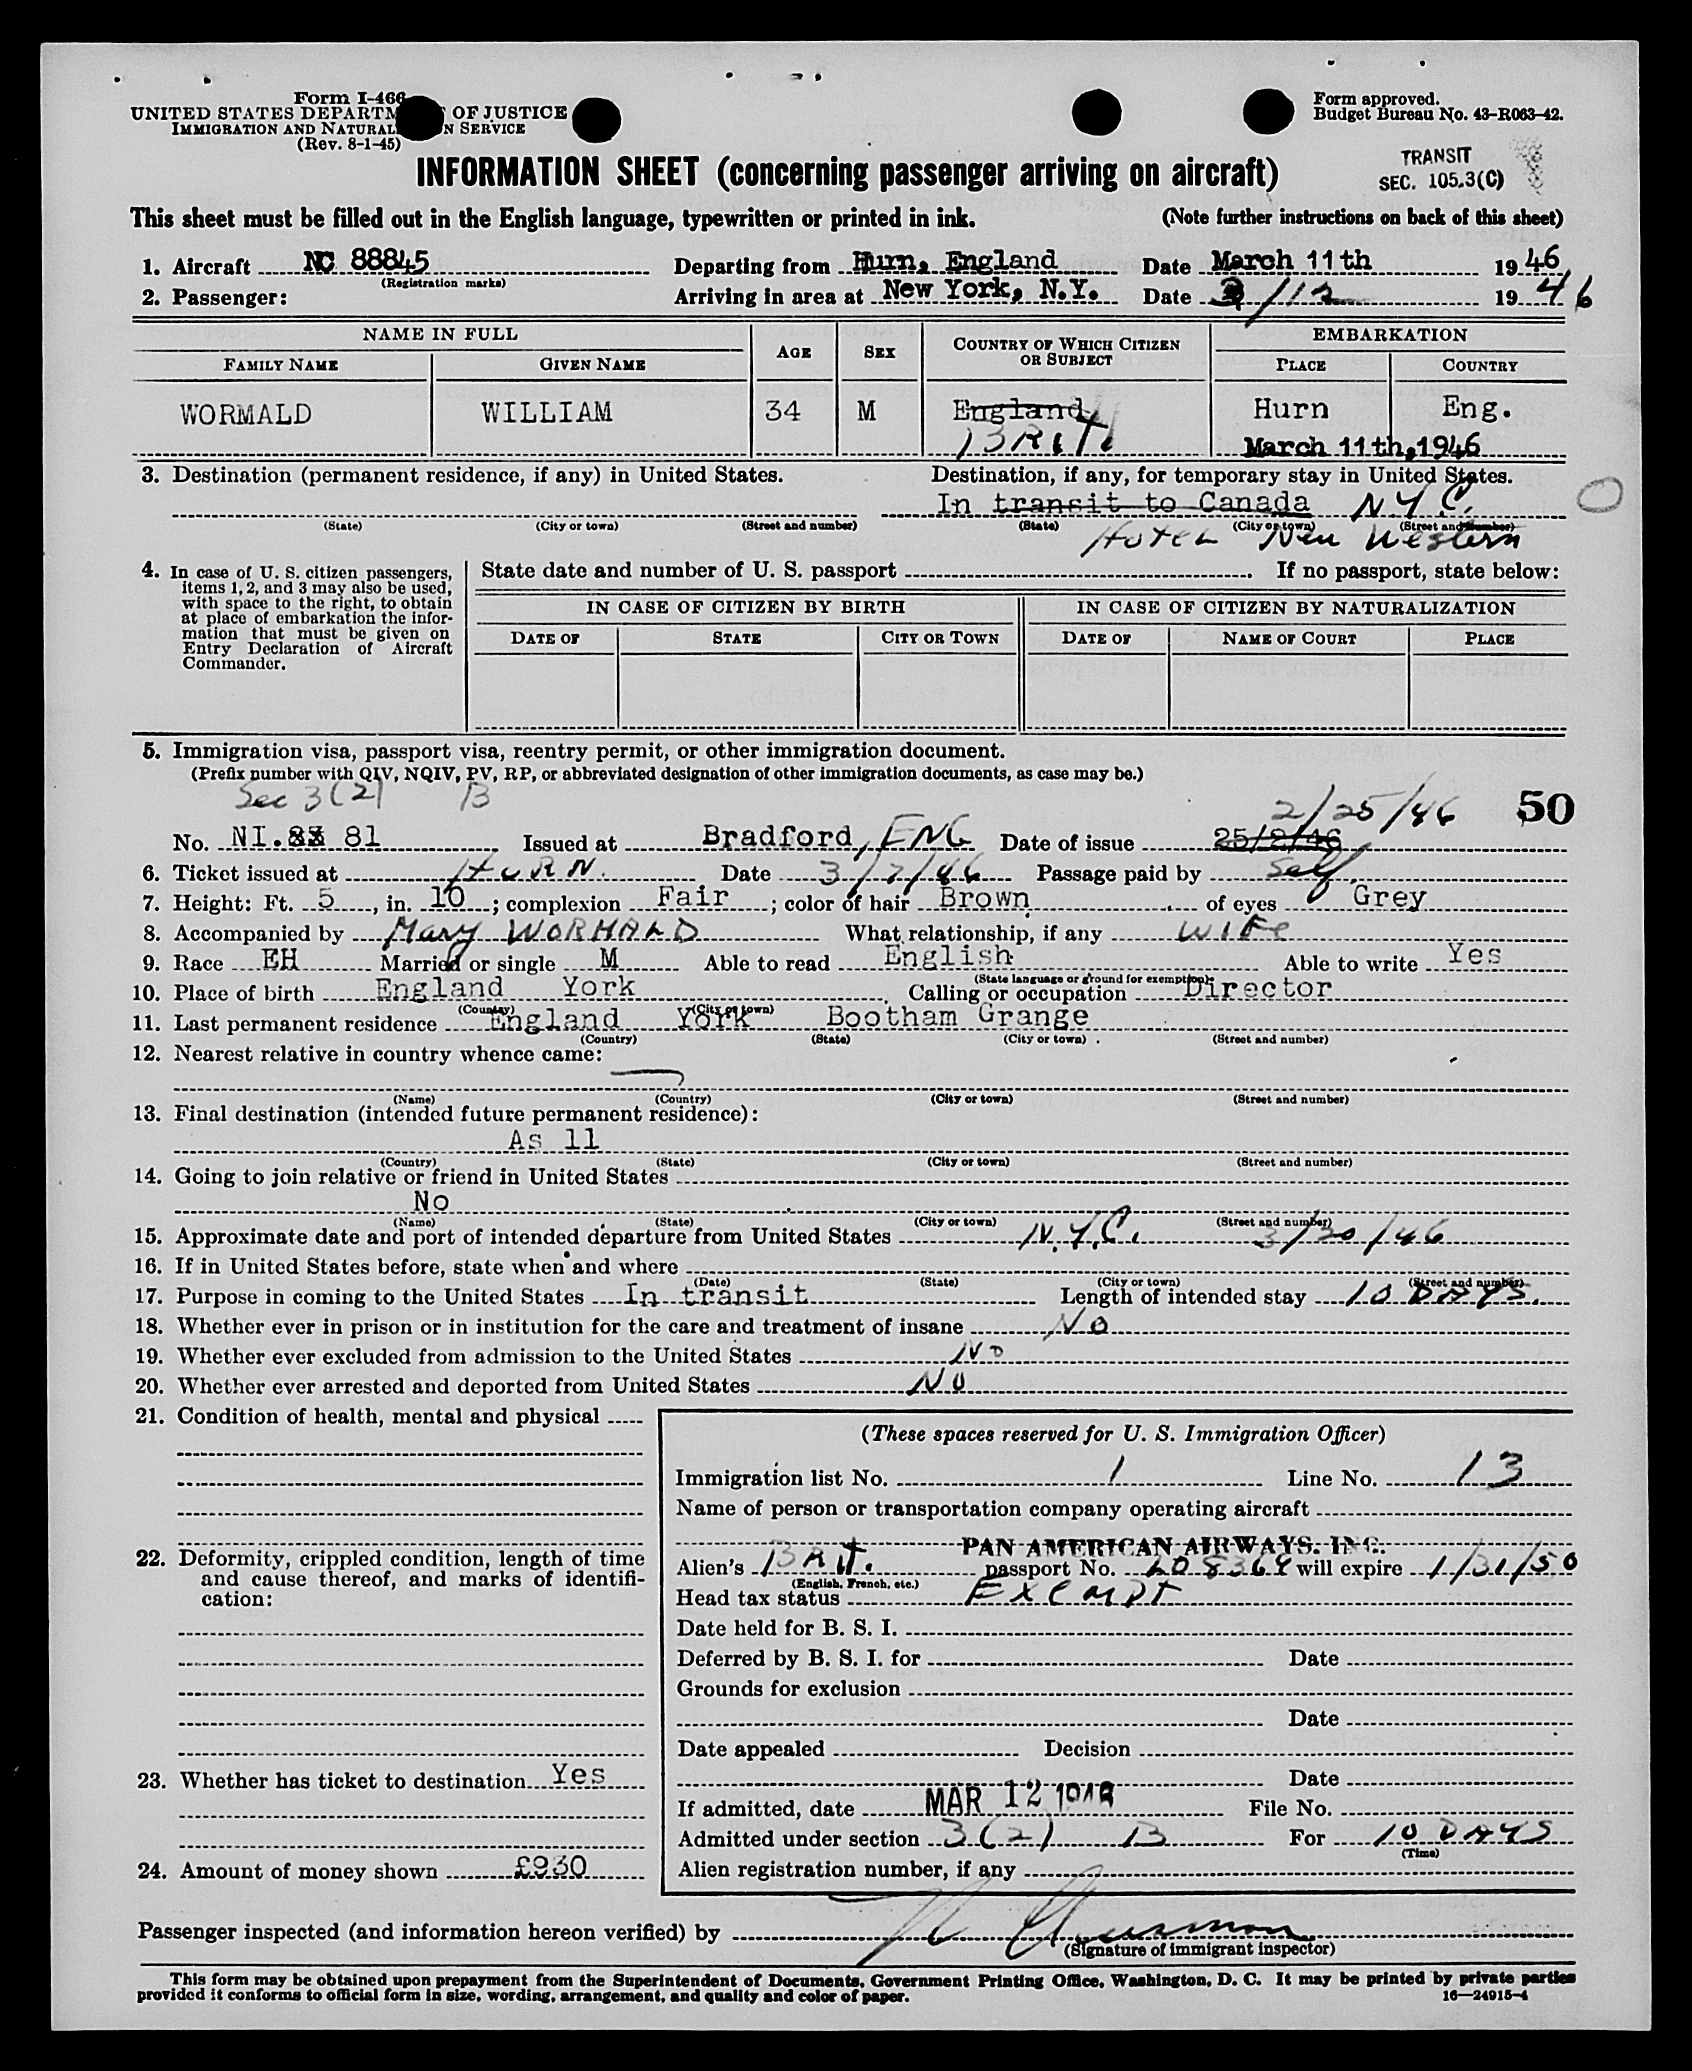 Form I-466
UNITED STATES DEPARTM OF JUSTICE
IMMIGRATION AND NATURAL N SERVICE
(Rev. 8-1-45)
Form approved.
Budget Bureau No. 43-R063-42.
INFORMATION SHEET (concerning passenger arriving on aircraft)
TRANSIT
SEC. 105.3(C)
This sheet must be filled out in the English language, typewritten or printed in ink. (Note further instructions on back of this sheet)
1. Aircraft NC 88845 Departing from Hurn, England Date March 11th 1946
(Registration marks)
2. Passenger: Arriving in area at New York, N.Y. Date 3/12 1946
NAME IN FULL AGE SEX COUNTRY OF WHICH CITIZEN OR SUBJECT EMBARKATION
FAMILY NAME GIVEN NAME PLACE COUNTRY
WORMALD WILLIAM 34 M England Hurn Eng.
BRIT. March 11th,1946
3. Destination (permanent residence, if any) in United States. Destination, if any, for temporary stay in United States.
In transit to Canada N.Y.C.
(State) (City or town) (Street and number) (State) (City or town) (Street and number)
HOTEL New Western
4. In case of U. S. citizen passengers, items 1, 2, and 3 may also be used, with space to the right, to obtain at place of embarkation the information that must be given on Entry Declaration of Aircraft Commander.
State date and number of U. S. passport If no passport, state below:
IN CASE OF CITIZEN BY BIRTH IN CASE OF CITIZEN BY NATURALIZATION
DATE OF STATE CITY OR TOWN DATE OF NAME OF COURT PLACE
5. Immigration visa, passport visa, reentry permit, or other immigration document.
(Prefix number with QIV, NQIV, PV, RP, or abbreviated designation of other immigration documents, as case may be.)
Sec 3(2) B 2/25/46 50
No. NI. 81 Issued at Bradford, ENG Date of issue 25/2/46
6. Ticket issued at HURN. Date 3/7/46 Passage paid by Self.
7. Height: Ft. 5, in. 10; complexion Fair; color of hair Brown of eyes Grey
8. Accompanied by Mary WORMALD What relationship, if any WIFE
9. Race EH Married or single M Able to read English Able to write Yes
(State language or ground for exemption)
10. Place of birth England York Calling or occupation Director
(Country) (City or town)
11. Last permanent residence England York Bootham Grange
(Country) (State) (City or town) (Street and number)
12. Nearest relative in country whence came:
(Name) (Country) (City or town) (Street and number)
13. Final destination (intended future permanent residence):
As 11
(Country) (State) (City or town) (Street and number)
14. Going to join relative or friend in United States
No
(Name) (State) (City or town) (Street and number)
15. Approximate date and port of intended departure from United States N.Y.C. 3/20/46
16. If in United States before, state when and where
(Date) (State) (City or town) (Street and number)
17. Purpose in coming to the United States In transit Length of intended stay 10 DAYS.
18. Whether ever in prison or in institution for the care and treatment of insane No
19. Whether ever excluded from admission to the United States No
20. Whether ever arrested and deported from United States No
21. Condition of health, mental and physical
22. Deformity, crippled condition, length of time and cause thereof, and marks of identification:
23. Whether has ticket to destination Yes
24. Amount of money shown £930
(These spaces reserved for U. S. Immigration Officer)
Immigration list No. 1 Line No. 13
Name of person or transportation company operating aircraft
PAN AMERICAN AIRWAYS. INC.
Alien's BRIT. passport No. 208369 will expire 1/31/50
(English, French, etc.)
Head tax status EXEMPT
Date held for B. S. I.
Deferred by B. S. I. for Date
Grounds for exclusion
Date
Date appealed Decision
Date
If admitted, date MAR 12 1946 File No.
Admitted under section 3(2) B For 10 DAYS
(Time)
Alien registration number, if any
Passenger inspected (and information hereon verified) by
(Signature of immigrant inspector)
This form may be obtained upon prepayment from the Superintendent of Documents, Government Printing Office, Washington, D. C. It may be printed by private parties
provided it conforms to official form in size, wording, arrangement, and quality and color of paper. 16—24915-4